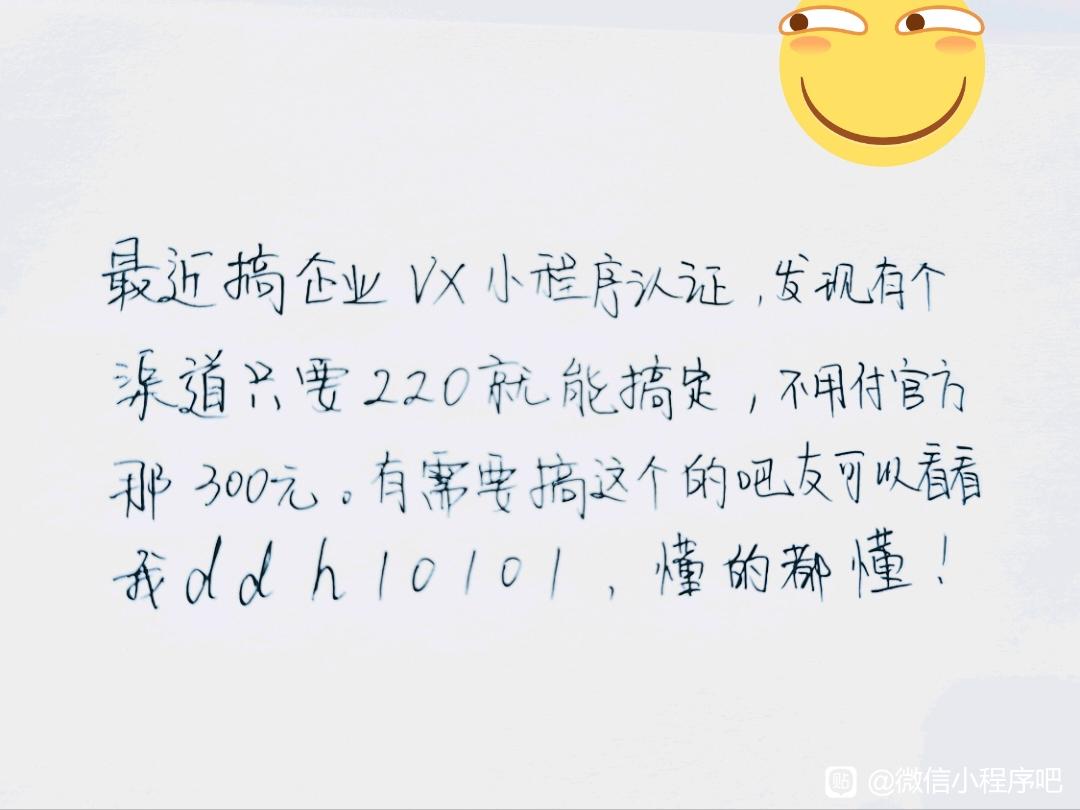 最近搞企业VX小程序认证，发现有个
渠道只要220就能搞定，不用付官方
那300元。有需要搞这个的吧友可以看看
我ddh10101，懂的都懂！
贴 @微信小程序吧